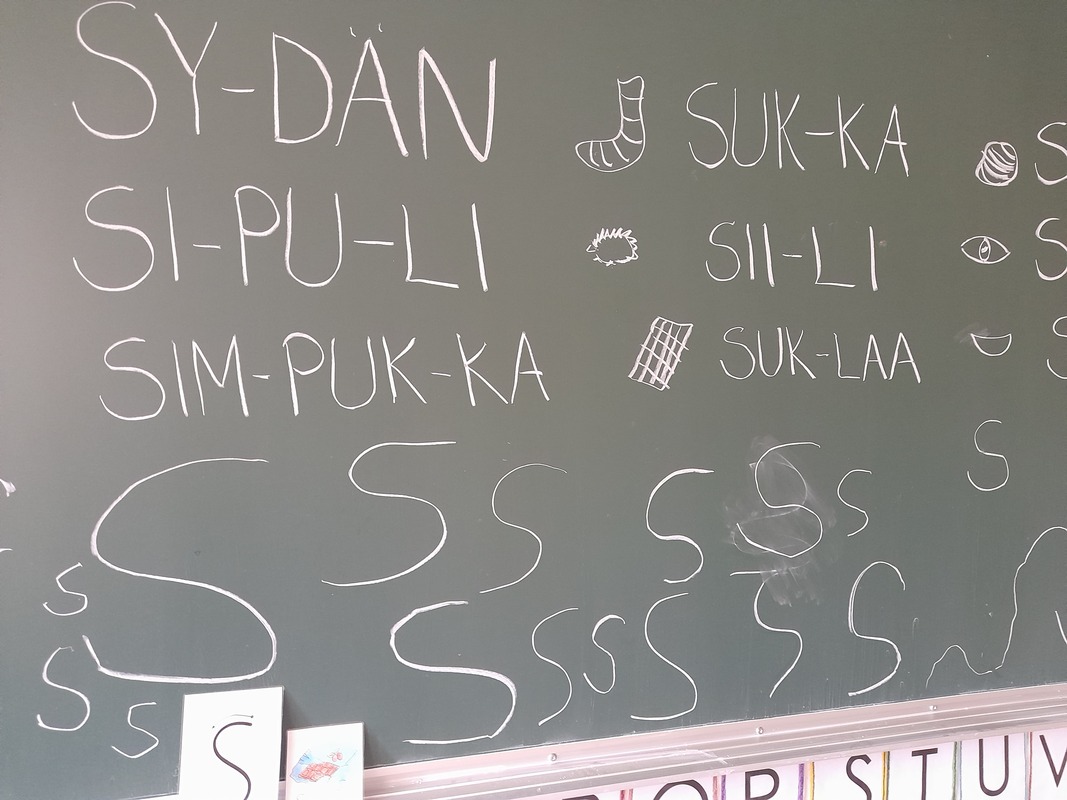 SY-DÄN
SI-PU-LI
SIM-PUK-KA
SUK-KA
SII-LI
SUK-LAA
S
S
S
S
S S S S S S
S
S S S S S S
S
S
S
S
S
S T U V